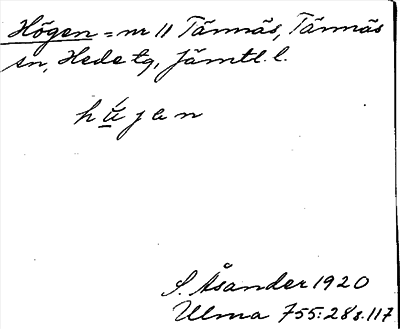 Högen = nr 11 Tännäs, Tännäs
sn, Hede tg, Jämtl. l.
hújan
S. Åsander 1920
Ulma 755:28 s. 117